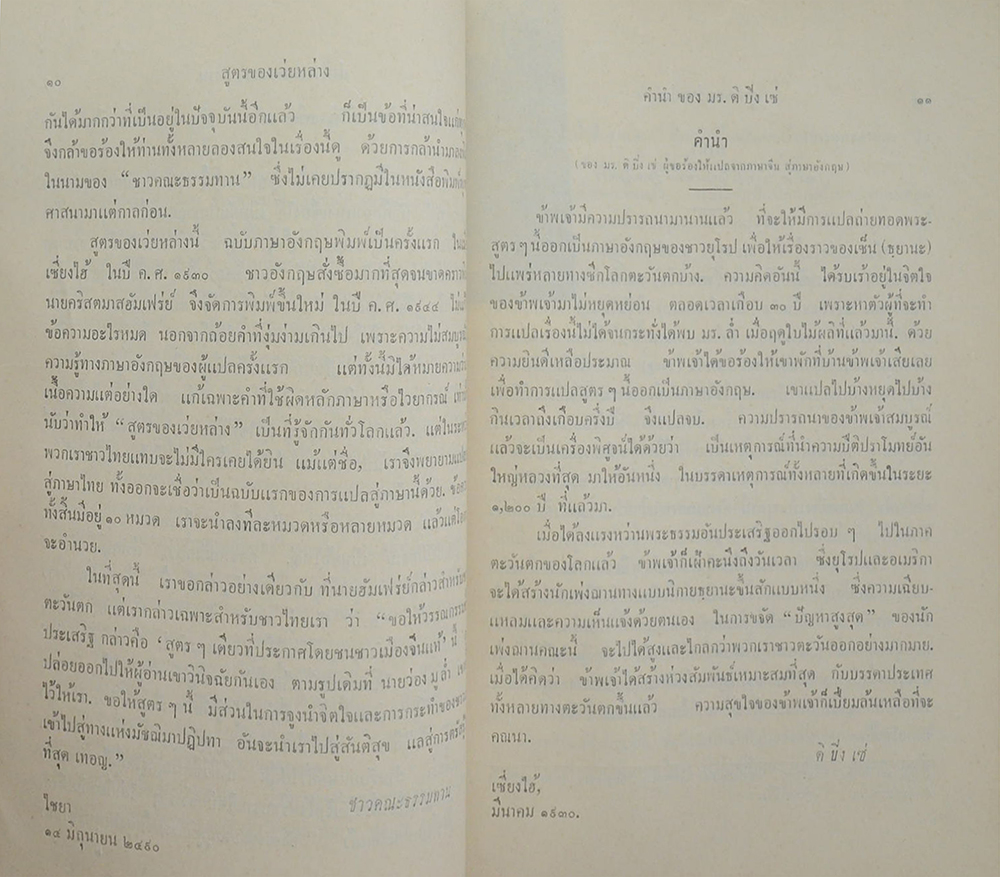 ๑๐
สูตรของเว่ยหล่าง
กันได้มากกว่าที่เป็นอยู่ในปัจจุบันนี้อีกแล้ว ก็เป็นข้อที่น่าสนใจ
จึงกล้าขอร้องให้ท่านทั้งหลายลองสนใจในเรื่องนี้ดู ด้วยการกล้านำมา
ในนามของ “ชาวคณะธรรมทาน” ซึ่งไม่เคยปรากฏมีในหนังสือพิมพ์
ศาสนามาแต่กาลก่อน.
สูตรของเว่ยหล่างนี้ ฉบับภาษาอังกฤษพิมพ์เป็นครั้งแรก
เซี่ยงไฮ้ ในปี ค.ศ. ๑๙๓๐ ชาวอังกฤษสั่งซื้อมากที่สุดจนขาดคราว
นายคริสตมาสฮัมเฟรย์ จึงจัดการพิมพ์ขึ้นใหม่ ในปี ค.ศ. ๑๙๔๔
ข้อความอะไรหมด นอกจากถ้อยคำที่งุ่มง่ามเกินไป เพราะความไม่สมบูรณ์
ความรู้ทางภาษาอังกฤษของผู้แปลครั้งแรก แต่ทั้งนี้มิได้หมายความ
เนื้อความแต่อย่างใด แก้เฉพาะคำที่ใช้ผิดหลักภาษาหรือไวยากรณ์
นับว่าทำให้ “สูตรของเว่ยหล่าง” เป็นที่รู้จักกันทั่วโลกแล้ว. แต่ใน
พวกเราชาวไทยแทบจะไม่มีใครเคยได้ยิน แม้แต่ชื่อ, เราจึงพยายาม
สู่ภาษาไทย ทั้งออกจะเชื่อว่าเป็นฉบับแรกของการแปลสู่ภาษานี้ด้วย.
ทั้งสิ้นมีอยู่ ๑๐ หมวด เราจะนำลงทีละหมวดหรือหลายหมวด แล้วแต่
จะอำนวย.
ในที่สุดนี้ เราขอกล่าวอย่างเดียวกับ ที่นายฮัมเฟรย์กล่าวสำหรับ
ตะวันตก แต่เรากล่าวเฉพาะสำหรับชาวไทยเรา ว่า “ขอให้วรรณกรรม
ประเสริฐ กล่าวคือ ‘สูตร ๆ เดียวที่ประกาศโดยชนชาวเมืองจีนแท้’ นี้
ปล่อยออกไปให้ผู้อ่านเขาวินิจฉัยกันเอง ตามรูปเดิมที่ นายว่อง มู ล่ำ
ไว้ให้เรา. ขอให้สูตร ๆ นี้ มีส่วนในการจูงนำจิตใจและการกระทำของ
เข้าไปสู่ทางแห่งมัชฌิมาปฏิปทา อันจะนำเราไปสู่สันติสุข แลสู่การตรัสรู้
ที่สุด เทอญ.”
ชาวคณะธรรมทาน
ไชยา
๑๔ มิถุนายน ๒๔๙๐
คำนำ ของ มร. ดิ ปิง เซ่
๑๑
คำนำ
(ของ มร. ดิ ปิง เซ่ ผู้ขอร้องให้แปลจากภาษาจีน สู่ภาษาอังกฤษ)
ข้าพเจ้ามีความปรารถนามานานแล้ว ที่จะให้มีการแปลถ่ายทอดพระ-
สูตร ๆ นี้ออกเป็นภาษาอังกฤษของชาวยุโรป เพื่อให้เรื่องราวของเซ็น (ธฺยานะ)
ไปแพร่หลายทางซีกโลกตะวันตกบ้าง. ความคิดอันนี้ ได้รบเร้าอยู่ในจิตใจ
ของข้าพเจ้ามาไม่หยุดหย่อน ตลอดเวลาเกือบ ๓๐ ปี เพราะหาตัวผู้ที่จะทำ
การแปลเรื่องนี้ไม่ได้จนกระทั่งได้พบ มร. ล่ำ เมื่อฤดูใบไม้ผลิที่แล้วมานี้. ด้วย
ความยินดีเหลือประมาณ ข้าพเจ้าได้ขอร้องให้เขาพักที่บ้านข้าพเจ้าเสียเลย
เพื่อทำการแปลสูตร ๆ นี้ออกเป็นภาษาอังกฤษ. เขาแปลไปบ้างหยุดไปบ้าง
กินเวลาถึงเกือบครึ่งปี จึงแปลจบ. ความปรารถนาของข้าพเจ้าสมบูรณ์
แล้วจะเป็นเครื่องพิสูจน์ได้ด้วยว่า เป็นเหตุการณ์ที่นำความปีติปราโมทย์อัน
ใหญ่หลวงที่สุด มาให้อันหนึ่ง ในบรรดาเหตุการณ์ทั้งหลายที่เกิดขึ้นในระยะ
๑,๒๐๐ ปี ที่แล้วมา.
เมื่อได้ลงแรงหว่านพระธรรมอันประเสริฐออกไปรอบ ๆ ไปในภาค
ตะวันตกของโลกแล้ว ข้าพเจ้าก็เฝ้าคะนึงถึงวันเวลา ซึ่งยุโรปและอเมริกา
จะได้สร้างนักเพ่งฌานทางแบบนิกายธฺยานะขึ้นสักแบบหนึ่ง ซึ่งความเฉียบ-
แหลมและความเห็นแจ้งด้วยตนเอง ในการขจัด “ปัญหาสูงสุด” ของนัก
เพ่งฌานคณะนี้ จะไปได้สูงและไกลกว่าพวกเราชาวตะวันออกอย่างมากมาย.
เมื่อได้คิดว่า ข้าพเจ้าได้สร้างห่วงสัมพันธ์เหมาะสมที่สุด กับบรรดาประเทศ
ทั้งหลายทางตะวันตกขึ้นแล้ว ความสุขใจของข้าพเจ้าก็เปี่ยมล้นเหลือที่จะ
คณนา.
ดิ ปิง เซ่
เซี่ยงไฮ้,
มีนาคม ๑๙๓๐.